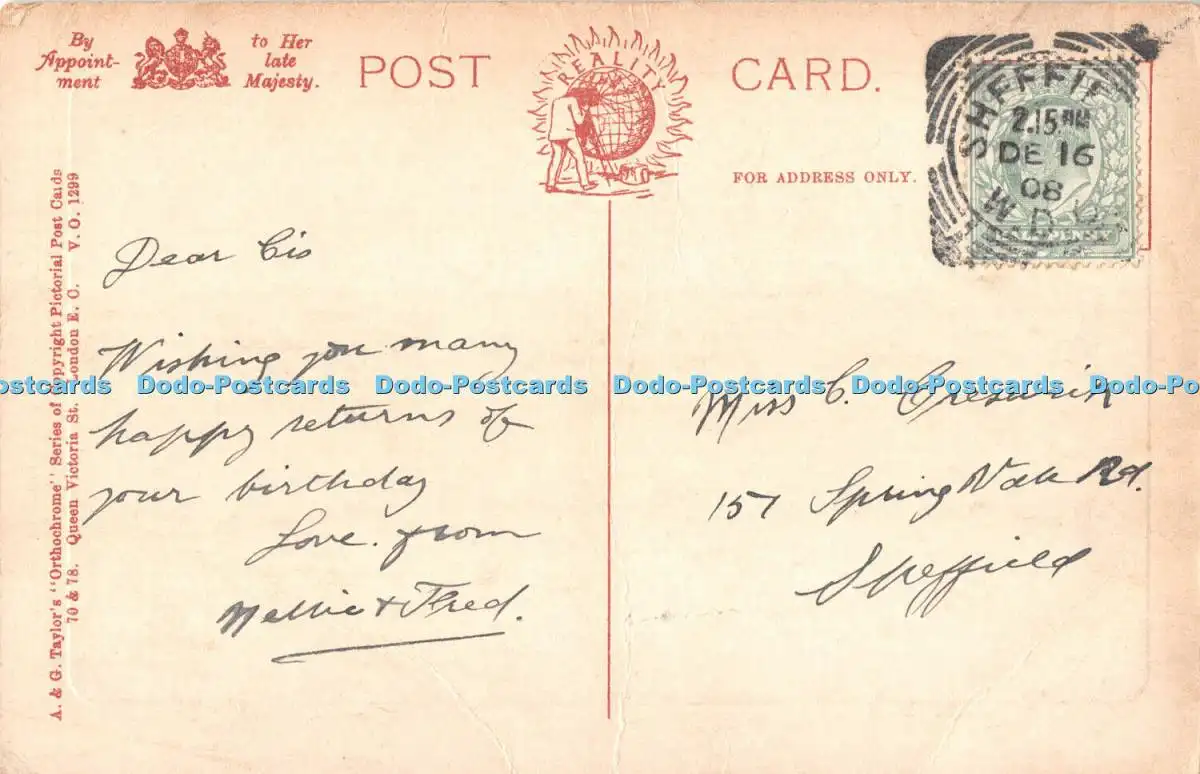 By
Appoint-
ment
to Her
late
Majesty.
POST
REALITY
CARD.
FOR ADDRESS ONLY.
SHEFFIE
2.15 PM
DE 16
08
HALFPENNY
A. & G. Taylor's "Orthochrome" Series of Copyright Pictorial Post Cards
70 & 78. Queen Victoria St. London E. C. V. O. 1299
Dear Cis
Wishing you many
happy returns of
your birthday
Love. from
Nellie & Fred.
Miss C. Creswick
157 Spring Vale Rd.
Sheffield
Dodo-Postcards Dodo-Postcards Dodo-Postcards Dodo-Postcards Dodo-Postcards